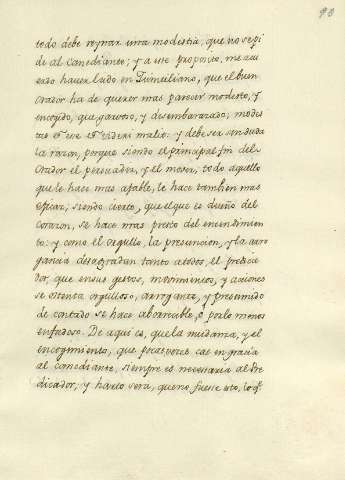 90
todo debe reynar una modestia, que no se pi
de al Comediante; y a este proposito, me acu
erdo haver leido en Quintiliano, que el buen
Orador ha de querer mas parecer modesto, y
encogido, que garvoso, y desembarazado: modes
tus esse et videri malio: y debe ser sin duda
la razon, porque siendo el principal fin del
Orador el persuadir, y el mover, todo aquello
que le hace mas afable, le hace tambien mas
eficaz; siendo cierto, que el que es dueño del
corazon, se hace mas presto del entendimien
to: y como el orgullo, la presuncion, y la arro
gancia desagradan tanto a todos, el predica
dor, que en sus gestos, movimientos, y acciones
se ostenta orgulloso, arrogante, y presumido
de contado se hace aborrecible, o por lo menos
enfadoso. De aqui es, que la mudanza, y el
encogimiento, que pocas veces cae en gracia
al comediante, siempre es necessaria al Pre
dicador; y harto sera, que no fuesse esto, lo qe.